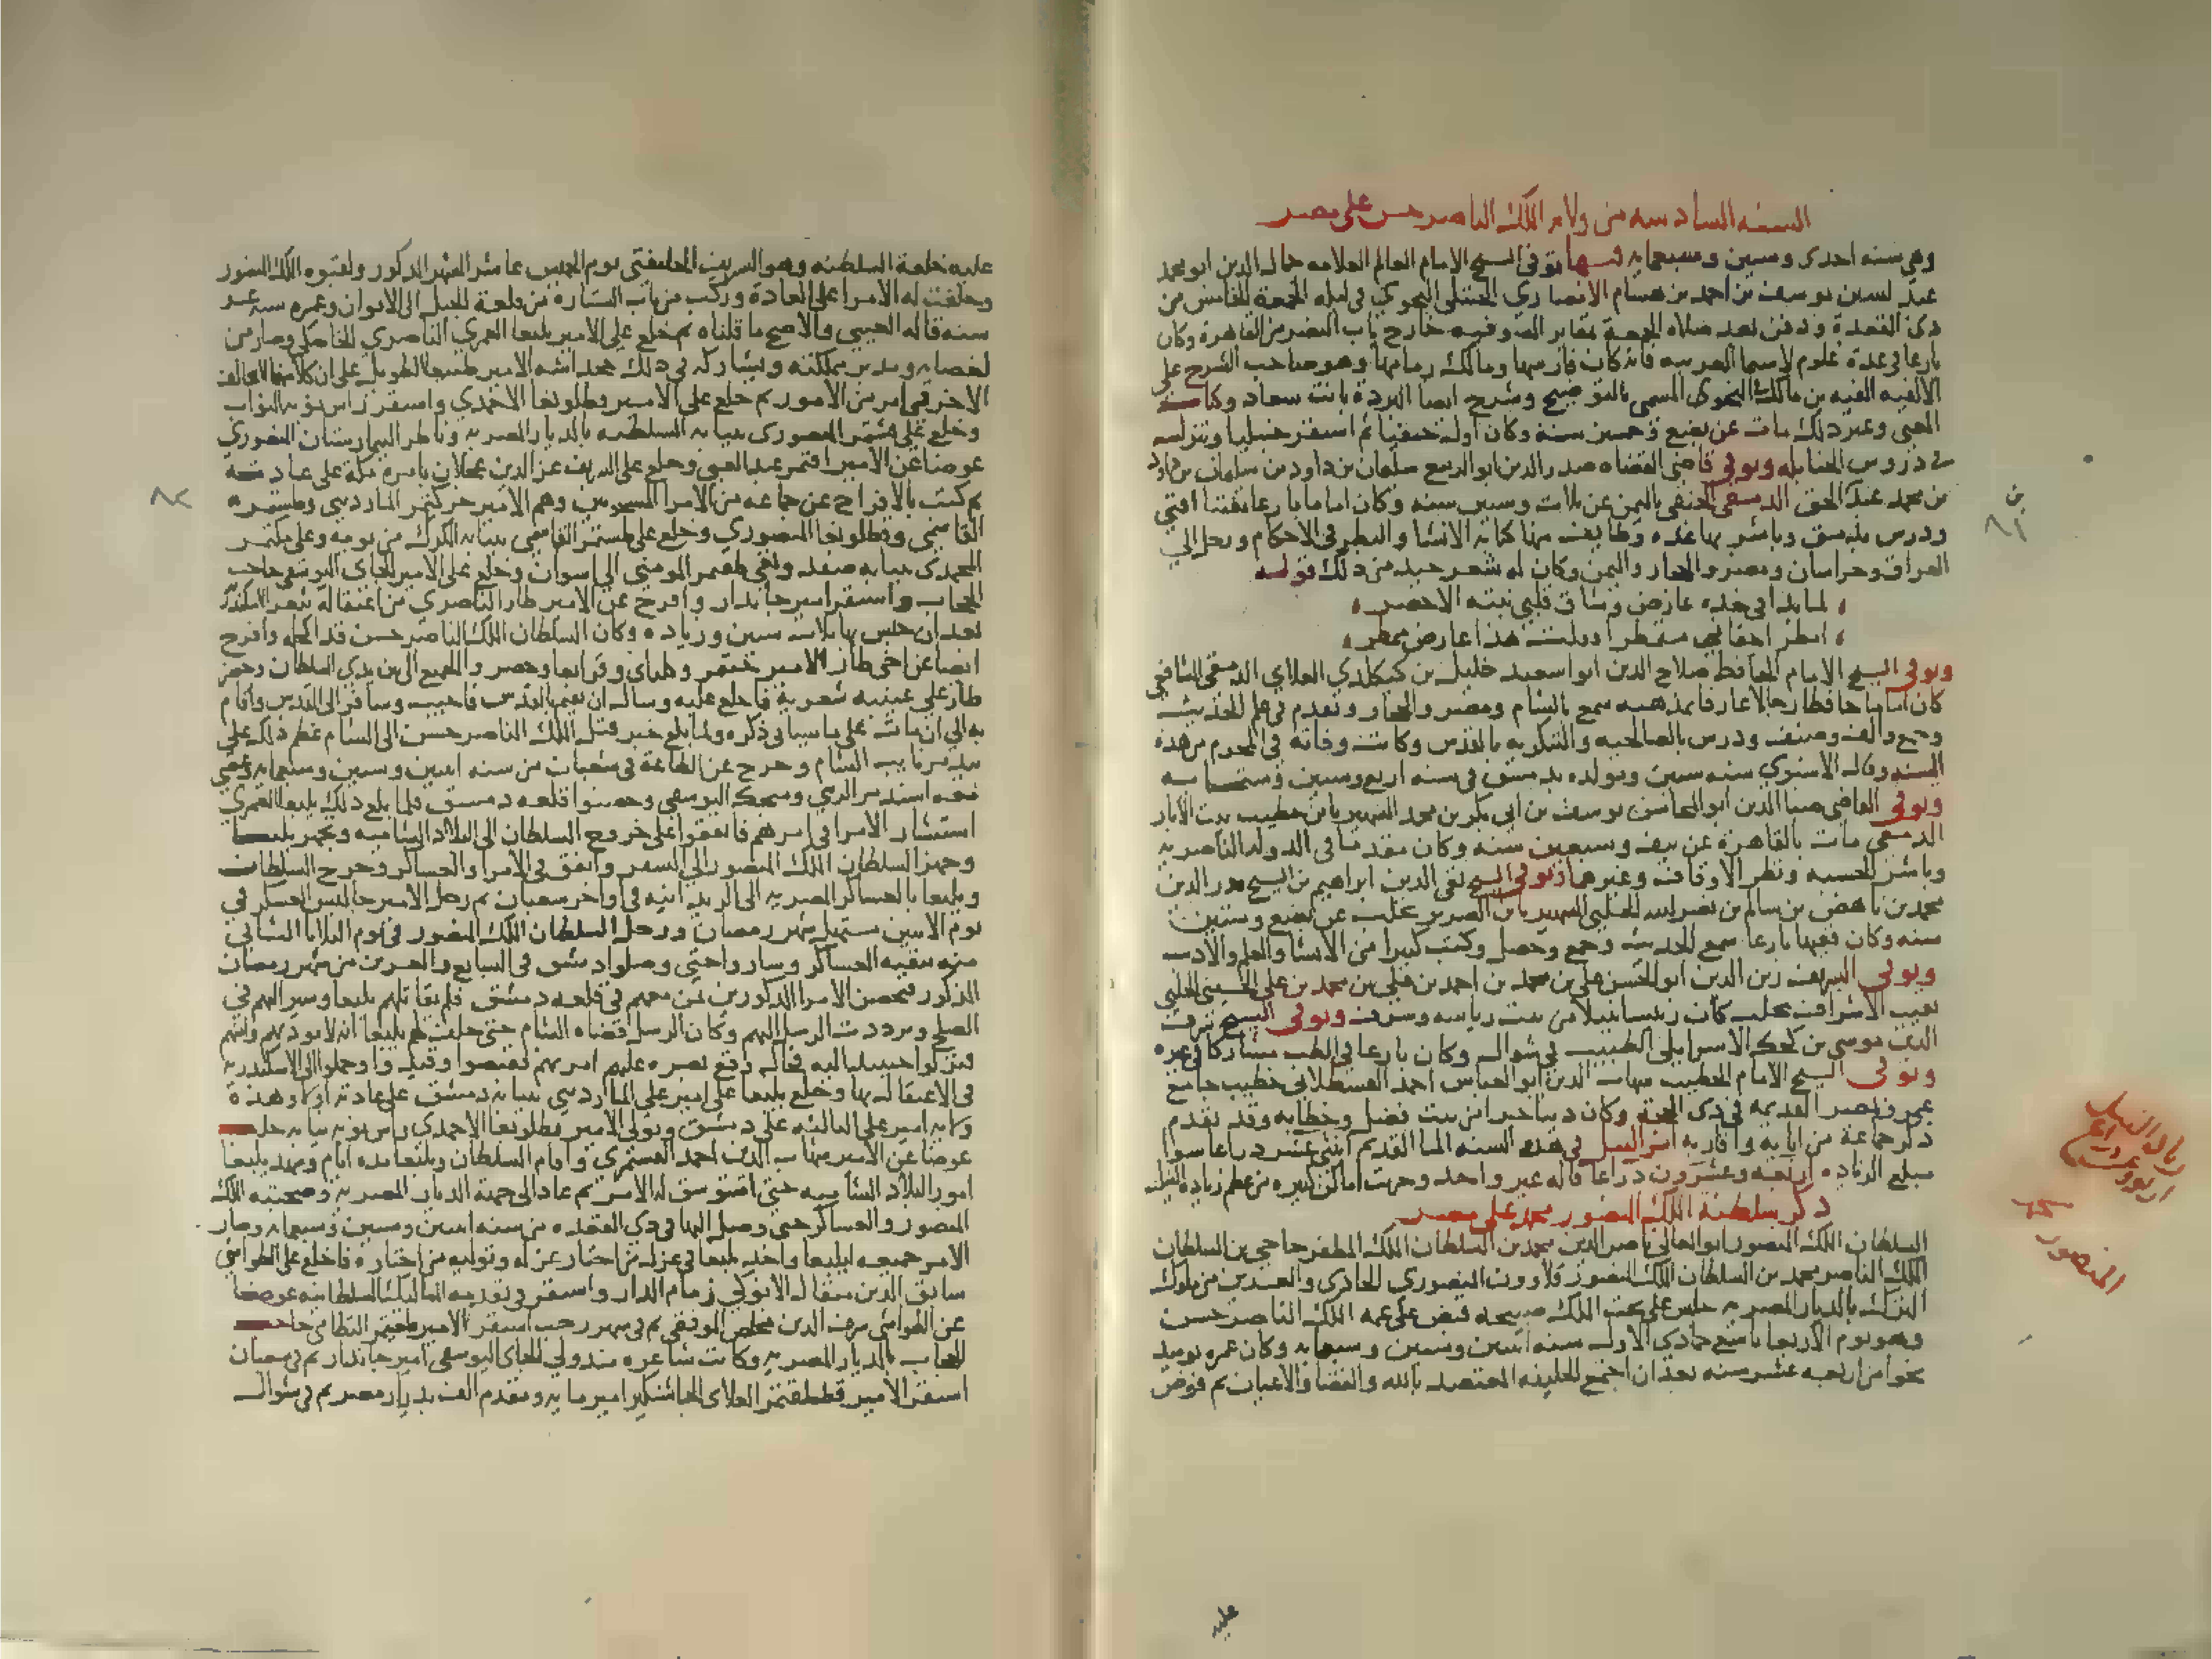 السنه السادسه من ولايه الملك الناصر حسن على مصر
وهي سنه احدى وستين وسبعمايه فيها توفى الشيخ الامام العالم العلامه جمال الدين ابو محمد
عبد الله بن يوسف بن احمد بن هشام الانصاري الحنبلى النحوي في ليله الجمعة الخامس من
ذى القعدة ودفن بعد صلاه الجمعة بمقابر الصوفيه خارج باب النصر من القاهرة وكان
بارعا في عدة علوم لاسيما العربيه فانه كان فارسها ومالك زمامها وهو صاحب الشرح على
الالفيه الفيه بن مالك في النحو المسمى بالتوضيح وشرح ايضا البردة بانت سعاد وكتاب
المغنى وغير ذلك مات عن بضع وخمسين سنة وكان اولا حنفيا ثم استقر حنبليا وتنزل
في دروس الحنابله وتوفى قاضى القضاه صدر الدين ابو الربيع سلمان بن داود بن سلمان بن داود
بن محمد عبد الحق الدمشقى الحنفى باليمن عن ثلاث وستين سنه وكان اماما بارعا مفتنا افتى
ودرس بدمشق وباشر بها عده وظايف منها كتابه الانشا والنظر في الاحكام ورحل الى
العراق وخراسان ومصر والحجاز واليمن وكان له شعر جيد من ذلك قوله
لما بدا في خده عارض وشاق قلبي نبته الاخضر
امطر اجفاني مستقطرا وقلت هذا عارض ممطر
وتوفى الشيخ الامام الحافظ صلاح الدين ابو سعيد خليل بن كيكلدي العلاي الدمشقى الشافعي
كان اماما حافظا رحالا عارفا بمذهبه سمع بالشام ومصر والحجاز وتقدم في علم الحديث
وجمع والف وصنف ودرس بالصالحيه والتنكريه بالقدس وكانت وفاته في المحرم من هذه
السنه وقال الاسنوي سنه ستين ومولده بدمشق في سنه اربع وتسعين وستمايه
وتوفى القاضى ضيا الدين ابو المحاسن يوسف بن ابي بكر بن محمد الشهير بابن خطيب بيت الابار
الدمشقى مات بالقاهرة عن نيف وسبعين سنه وكان مقدما في الدوله الناصريه
وباشر الحسبه ونظر الاوقاف وغيرها وتوفى الشيخ تقى الدين ابراهيم بن الشيخ بدر الدين
محمد بن ناهض بن سالم بن نصر الله الحلبي الشهير بابن الضرير بحلب عن بضع وستين
سنه وكان فقيها بارعا سمع الحديث وجمع وحصل وكتب كثيرا من الانشا والعلم والادب
وتوفى الشريف زين الدين ابو الحسن على بن محمد بن احمد بن على بن محمد بن على الحسينى الحلبي
نقيب الاشراف بحلب كان رئيسا نبيلا من بيت رياسه وشرف وتوفى الشيخ شرف
الدين موسى بن كجك الاسرايلى الطبيب في شوال وكان بارعا في الطب مشاركا في غيره
وتوفى الشيخ الامام الخطيب شهاب الدين ابو العباس احمد القسطلانى خطيب جامع
عمرو بمصر القديمه في ذى الحجة وكان دينا خيرا من بيت فضل وخطابه وقد تقدم
ذكر جماعة من ابايه واقاربه امر النيل في هذه السنه الما القديم اثنى عشر ذراعا سوا
مبلغ الزياده اربعه وعشرون ذراعا قاله غير واحد وخربت اماكن كثيره من عظم زياده النيل
ذكر سلطنة الملك المنصور محمد على مصر
السلطان الملك المنصور ابو المعالى ناصر الدين محمد بن السلطان الملك المظفر حاجى بن السلطان
الملك الناصر محمد بن السلطان الملك المنصور قلاوون المنصوري الحادى والعشرين من ملوك
الترك بالديار المصريه جلس على تخت الملك صبيحه قبض على عمه الملك الناصر حسن
وهو يوم الاربعا تاسع جمادى الاولى سنه اثنين وستين وسبعمايه وكان عمره يوميذ
نحوا من اربعه عشر سنه بعد ان اجتمع الخليفه المعتضد بالله والقضا والاعيان ثم فوض
عليه
زياده النيل
اربعه وعشرون ذراعا
محمد
المنصور
عليه خلعة السلطنه وهو التشريف الخليفتى يوم الخميس عاشر الشهر المذكور ولقبوه الملك المنصور
وحلفت له الامرا على العادة وركب من باب الستارة من قلعة الجبل الى الايوان وعمره ستة عشر
سنه قاله العينى والاصح ما قلناه ثم خلع على الامير يلبغا العمري الناصري الخاصكى وصار من
الاخر في امر من الامور ثم خلع على الامير قطلوبغا الاحمدي واستقر راس نوبه النواب
وخلع على قشتمر المنصورى بنيابه السلطنه بالديار المصريه وناظر البيمارستان المنصوري
عوضا عن الامير اقتمر عبد الغنى وخلع على الشريف عز الدين عجلان بامره مكة على عادته
ثم كتب بالافراج عن جماعه من الامرا المسجونين وهم الامير جركتمر الماردينى وطشتمر
القاسمى وقطلوبغا المنصوري وخلع على طشتمر القاسمى بنيابه الكرك من يومه وعلى ملكتمر
المحمدى بنيابه صفد ونفى طغيتمر المومنى الى اسوان وخلع على الامير الجاى اليوسفى حاجب
الحجاب واستقر امير جاندار وافرج عن الامير طاز الناصري من اعتقاله بثغر الاسكندريه
بعد ان حبس بها ثلاث سنين وزياده وكان السلطان الملك الناصر حسن قد اكحله وافرج
ايضا عن اخى طاز الامير جنتمر وحضر والجميع الى بين يدى السلطان وحضر
طاز على عينيه شعريه فاخلع عليه وسال ان يقيم بالقدس فاجيب وسافر الى القدس واقام
به الى ان مات على ما سياتى ذكره ولما بلغ خبر قتل الملك الناصر حسن الى الشام عظم ذلك على
بيدمر نايب الشام وخرج عن الطاعة في شعبان من سنه اثنين وستين وسبعمايه وعصى
معه اسندمر الزينى ومنجك اليوسفى وحصنوا قلعه دمشق فلما بلغ ذلك يلبغا العمري
استشار الامرا في امرهم فاتفقوا على خروج السلطان الى البلاد الشاميه وتجهز يلبغا
وجهز السلطان الملك المنصور الى السفر وانفق في الامرا والعساكر وخرج السلطان
ويلبغا بالعساكر المصريه الى الريدانيه في اواخر شعبان ثم رحل الامير جاليش العسكر في
يوم الاثنين مستهل شهر رمضان ورحل السلطان الملك المنصور في يوم الثلاثا الثانى
منه ببقيه العساكر وساروا حتى وصلوا دمشق في السابع والعشرين من شهر رمضان
المذكور فتحصن الامرا المذكورين بمن معهم في قلعه دمشق فلم يقاتلهم يلبغا وسير اليهم في
الصلح وترددت الرسل اليهم وكان الرسل قضاه الشام حتى حلف لهم يلبغا انه لا يوذيهم وامنهم
فنزلوا حينئذ اليه فحال وقع بصره عليهم امر بهم فقبضوا وقيدوا وحملوا الى الاسكندريه
في الاعتقال بها وخلع يلبغا على امير على الماردينى بنيابه دمشق على عادته اولا وهذة
ولايه امير على الثالثه على دمشق وتولى الامير قطلوبغا الاحمدى راس نوبه نيابه حلب
عوضا عن الامير شهاب الدين احمد القشتمرى واقام السلطان ويلبغا مده ايام ومهد يلبغا
امور البلاد الشاميه حتى استوسق له الامر ثم عاد الى جهة الديار المصريه وصحبته الملك
المنصور والعساكر حتى وصل اليها في ذى القعده من سنه اثنين وستين وسبعمايه وصار
الامر جميعه ليلبغا واخذ يلبغا في عزل من اختار عزله وتوليه من اختاره فاخلع على الطواشى
سابق الدين مثقال الانوكى زمام الدار واستقر في تقدمه المماليك السلطانيه عوضا
عن الطواشى شرف الدين مختص الموفقى ثم في شهر رجب استقر الامير طغيتمر النظامى حاجب
الحجاب بالديار المصريه وكانت شاغره منذ ولى الجاى اليوسفى امير جاندار ثم في شعبان
استقر الامير قطلقتمر العلاى الجاشنكير امير مايه ومقدم الف بديار مصر ثم في شوال